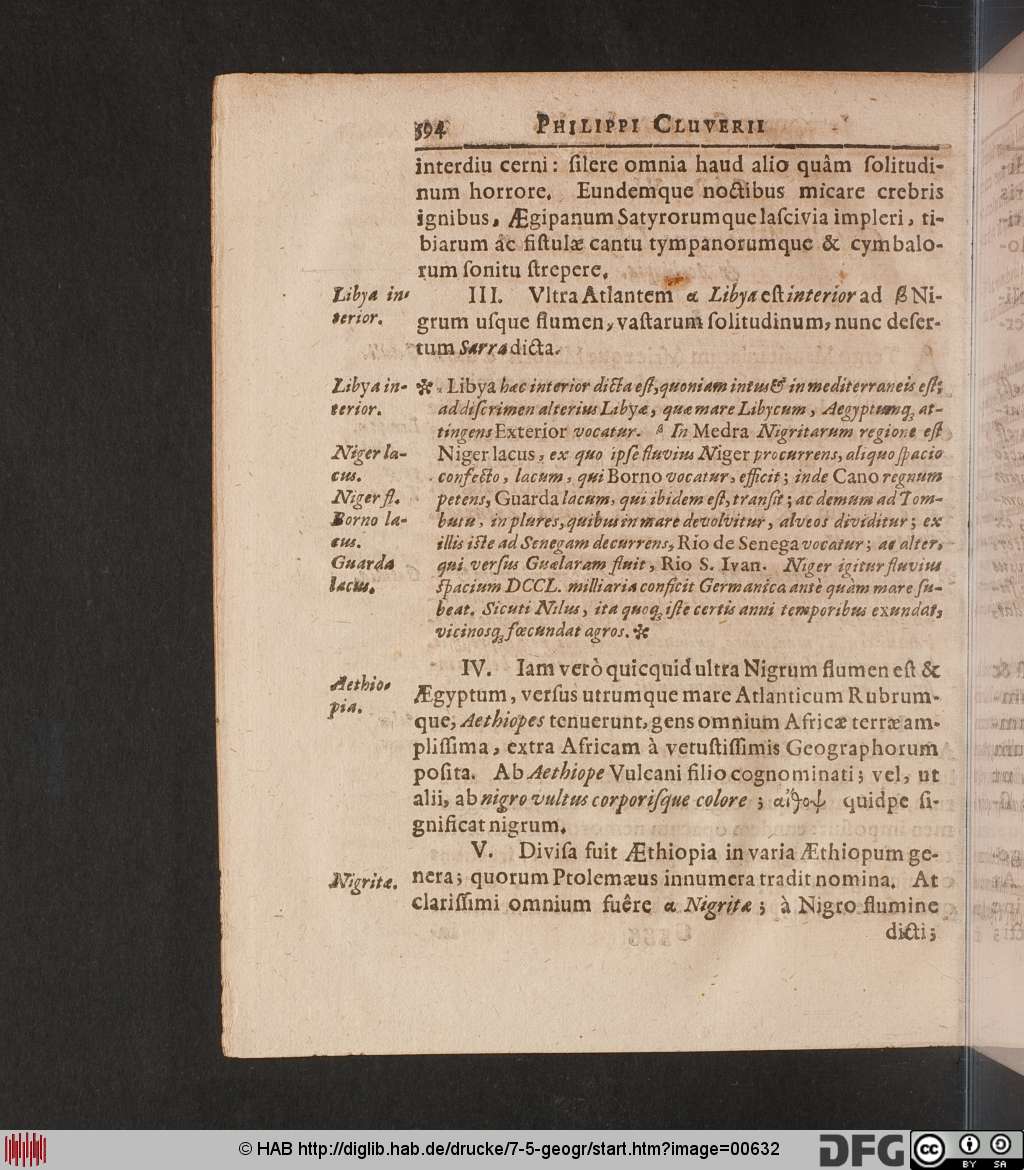 394 PHILIPPI CLUVERII
interdiu cerni: ſilere omnia haud alio quâm ſolitudi-
num horrore. Eundemque noctibus micare crebris
ignibus, Ægipanum Satyrorumque laſcivia impleri, ti-
biarum ac fiſtulæ cantu tympanorumque & cymbalo-
rum ſonitu ſtrepere.
Libya in-
terior.
III. Vltra Atlantem α Libya eſt interior ad β Ni-
grum uſque flumen, vaſtarum ſolitudinum, nunc deſer-
tum Sarra dicta.
Libya in-
terior.
✻ α Libya hæc interior dicta eſt, quoniam intus & in mediterraneis eſt;
ad diſcrimen alterius Libyæ, quæ mare Libycum, Aegyptumq; at-
tingens Exterior vocatur. β In Medra Nigritarum regione eſt
Niger la-
cus.
Niger fl.
Borno la-
cus.
Guarda
lacus.
Niger lacus, ex quo ipſe fluvius Niger procurrens, aliquo ſpacio
confecto, lacum, qui Borno vocatur, efficit; inde Cano regnum
petens, Guarda lacum, qui ibidem eſt, tranſit; ac demum ad Tom-
butu, in plures, quibus in mare devolvitur, alveos dividitur; ex
illis iſte ad Senegam decurrens, Rio de Senega vocatur; ac alter,
qui verſus Gualaram fluit, Rio S. Ivan. Niger igitur fluvius
ſpacium DCCL. milliaria conficit Germanica antè quàm mare ſu-
beat. Sicuti Nilus, ita quoq; iſte certis anni temporibus exundat,
vicinosq; fœcundat agros. ✻
Aethio-
pia.
IV. Iam verò quicquid ultra Nigrum flumen eſt &
Ægyptum, verſus utrumque mare Atlanticum Rubrum-
que, Aethiopes tenuerunt, gens omnium Africæ terræ am-
pliſſima, extra Africam à vetuſtiſſimis Geographorum
poſita. Ab Aethiope Vulcani filio cognominati; vel, ut
alii, ab nigro vultus corporiſque colore; αἰθοψ quidpe ſi-
gnificat nigrum.
V. Diviſa fuit Æthiopia in varia Æthiopum ge-
Nigritæ.
nera; quorum Ptolemæus innumera tradit nomina. At
clariſſimi omnium fuêre α Nigritæ; à Nigro flumine
dicti;
© HAB http://diglib.hab.de/drucke/7-5-geogr/start.htm?image=00632
DFG
cc
BY SA